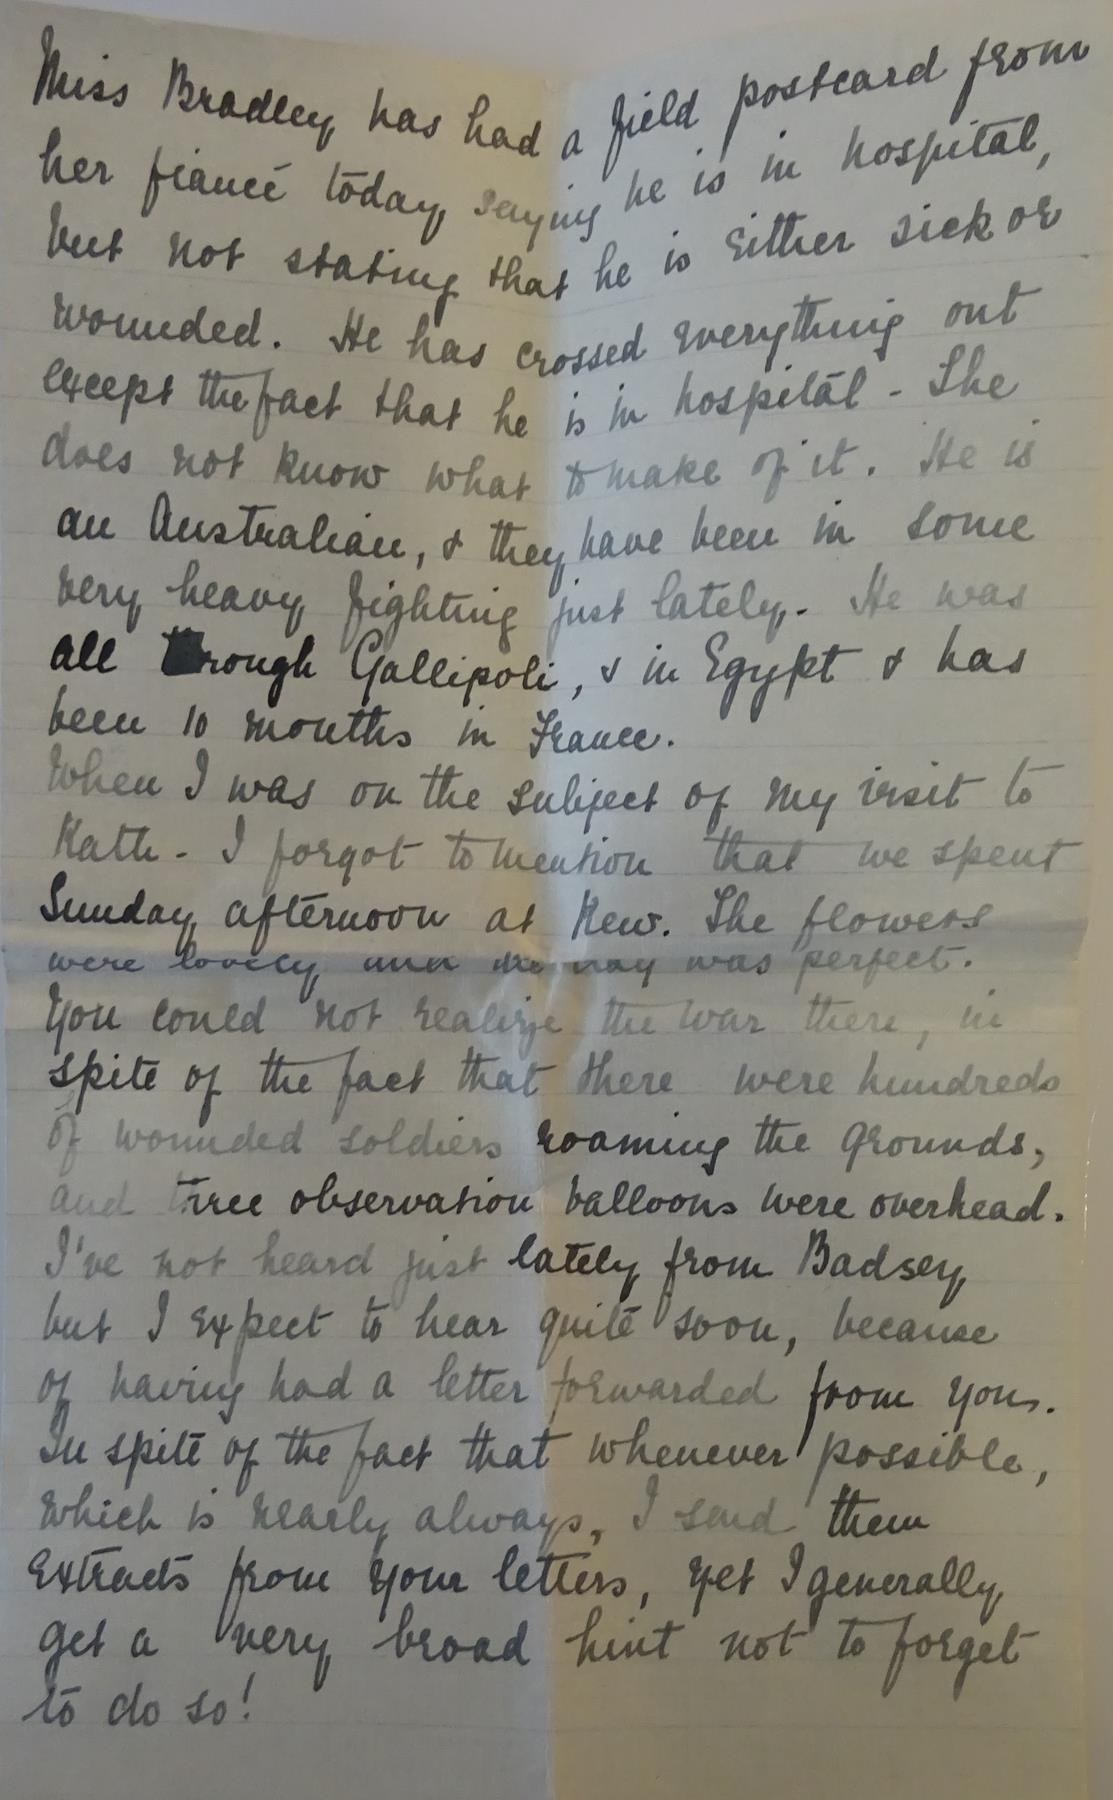 Miss Bradley has had a field postcard from
her fiancé today saying he is in hospital,
but not stating that he is either sick or
wounded. He has crossed everything out
except the fact that he is in hospital - She
does not know what to make of it. He is
an Australian, & they have been in some
very heavy fighting just lately. He was
all through Gallipoli, & in Egypt & has
been 10 months in France.
When I was on the subject of my visit to
Kath - I forgot to mention that we spent
Sunday afternoon at Kew. The flowers
were lovely and the day was perfect.
You could not realize the war there, in
spite of the fact that there were hundreds
of wounded soldiers roaming the grounds,
and three observation balloons were overhead.
I've not heard just lately from Badsey
but I expect to hear quite soon, because
of having had a letter forwarded from you.
In spite of the fact that whenever possible,
which is nearly always, I send them
extracts from your letters, yet I generally
get a very broad hint not to forget
to do so!